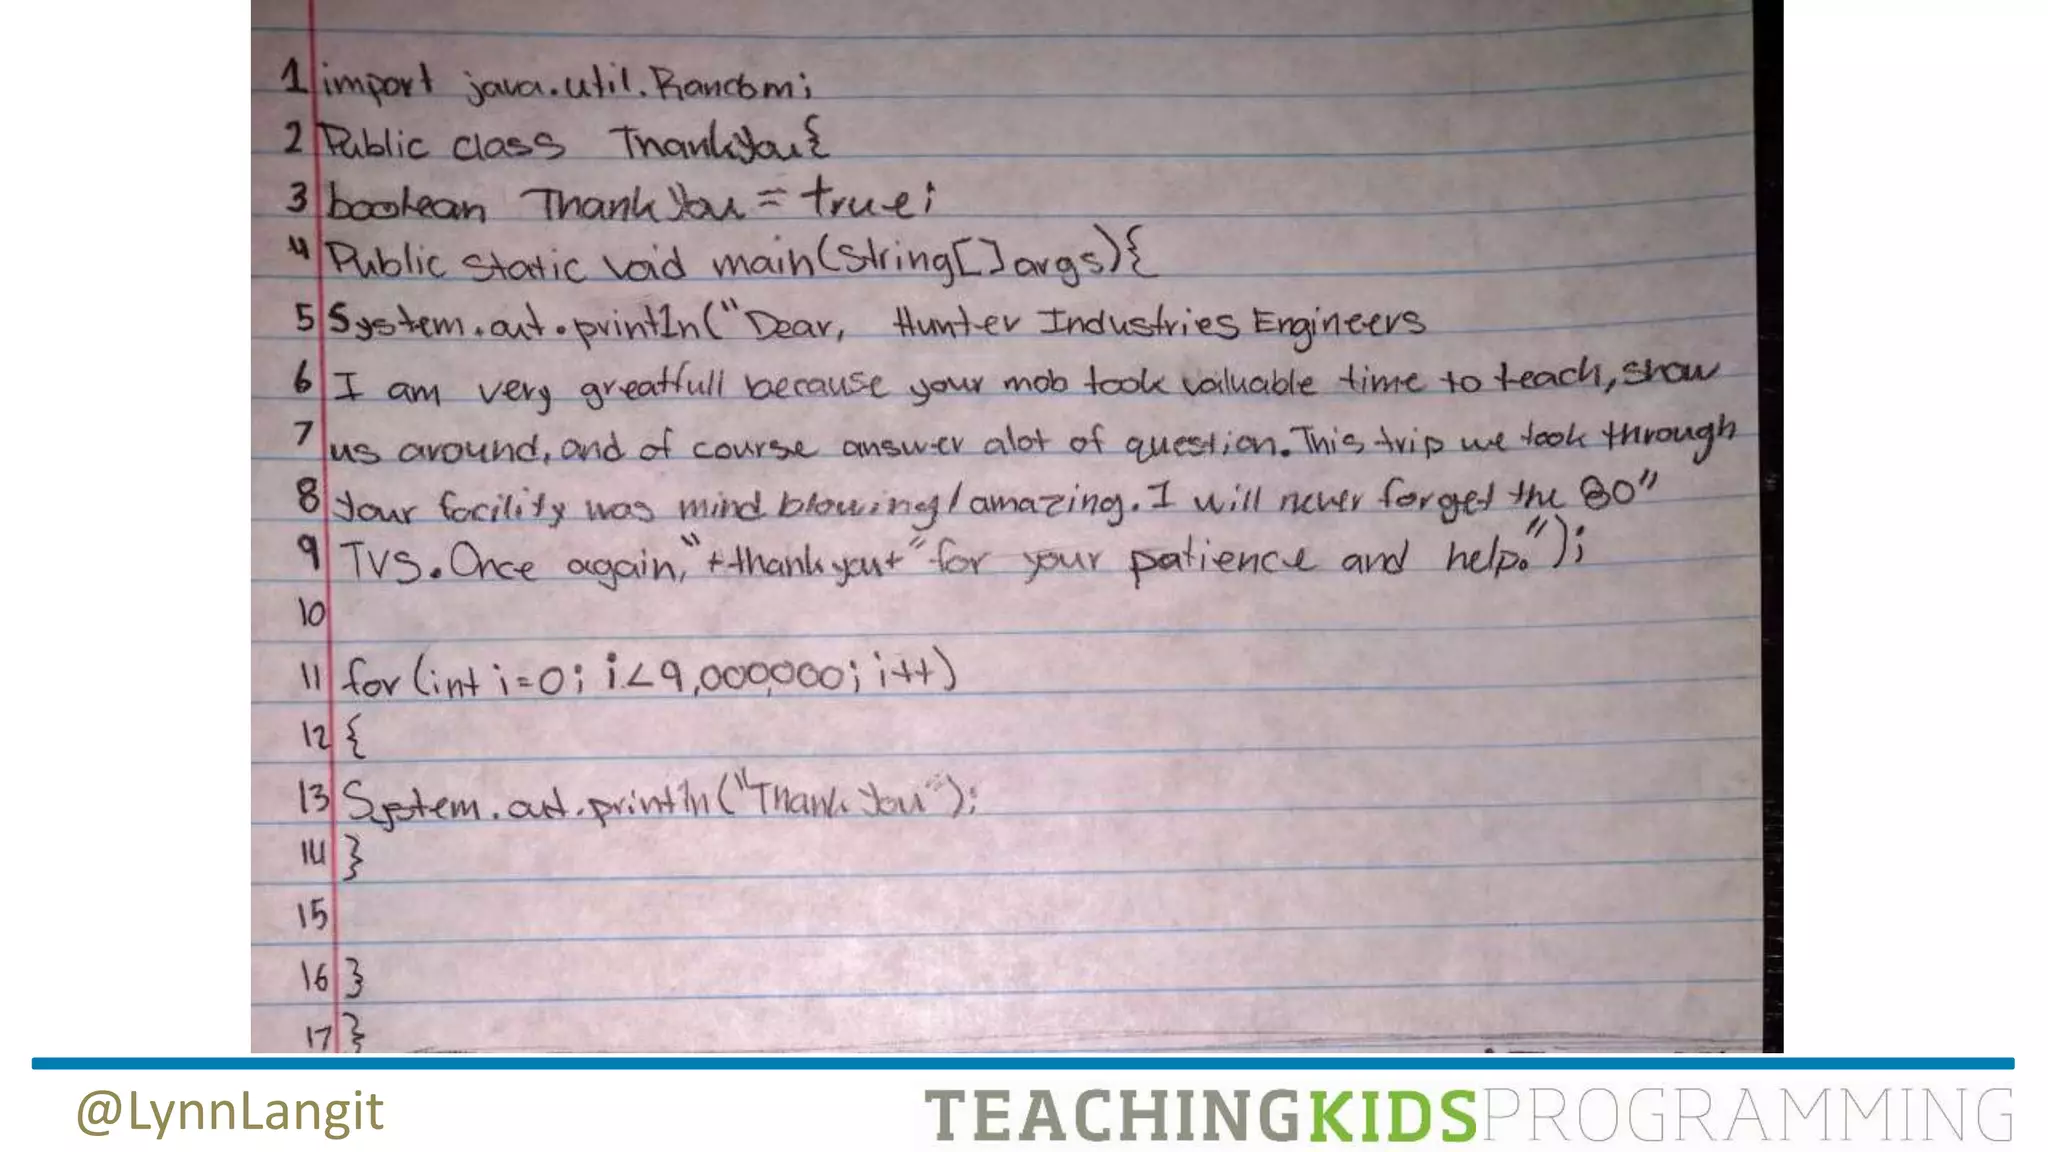 1 import java.util.Random;
2 Public class ThankYou{
3 boolean ThankYou = true;
4 Public static void main(String[] args){
5 System.out.println("Dear, Hunter Industries Engineers
6 I am very greatfull because your mob took valuable time to teach, show
7 us around, and of course answer alot of question. This trip we took through
8 your facility was mind blowing/amazing. I will never forget the 80"
9 TVs. Once again," + thankyou + "for your patience and help.");
10
11 for(int i=0; i<9,000,000; i++)
12 {
13 System.out.println("Thank You");
14 }
15
16 }
17 }
@LynnLangit
TEACHINGKIDSPROGRAMMING